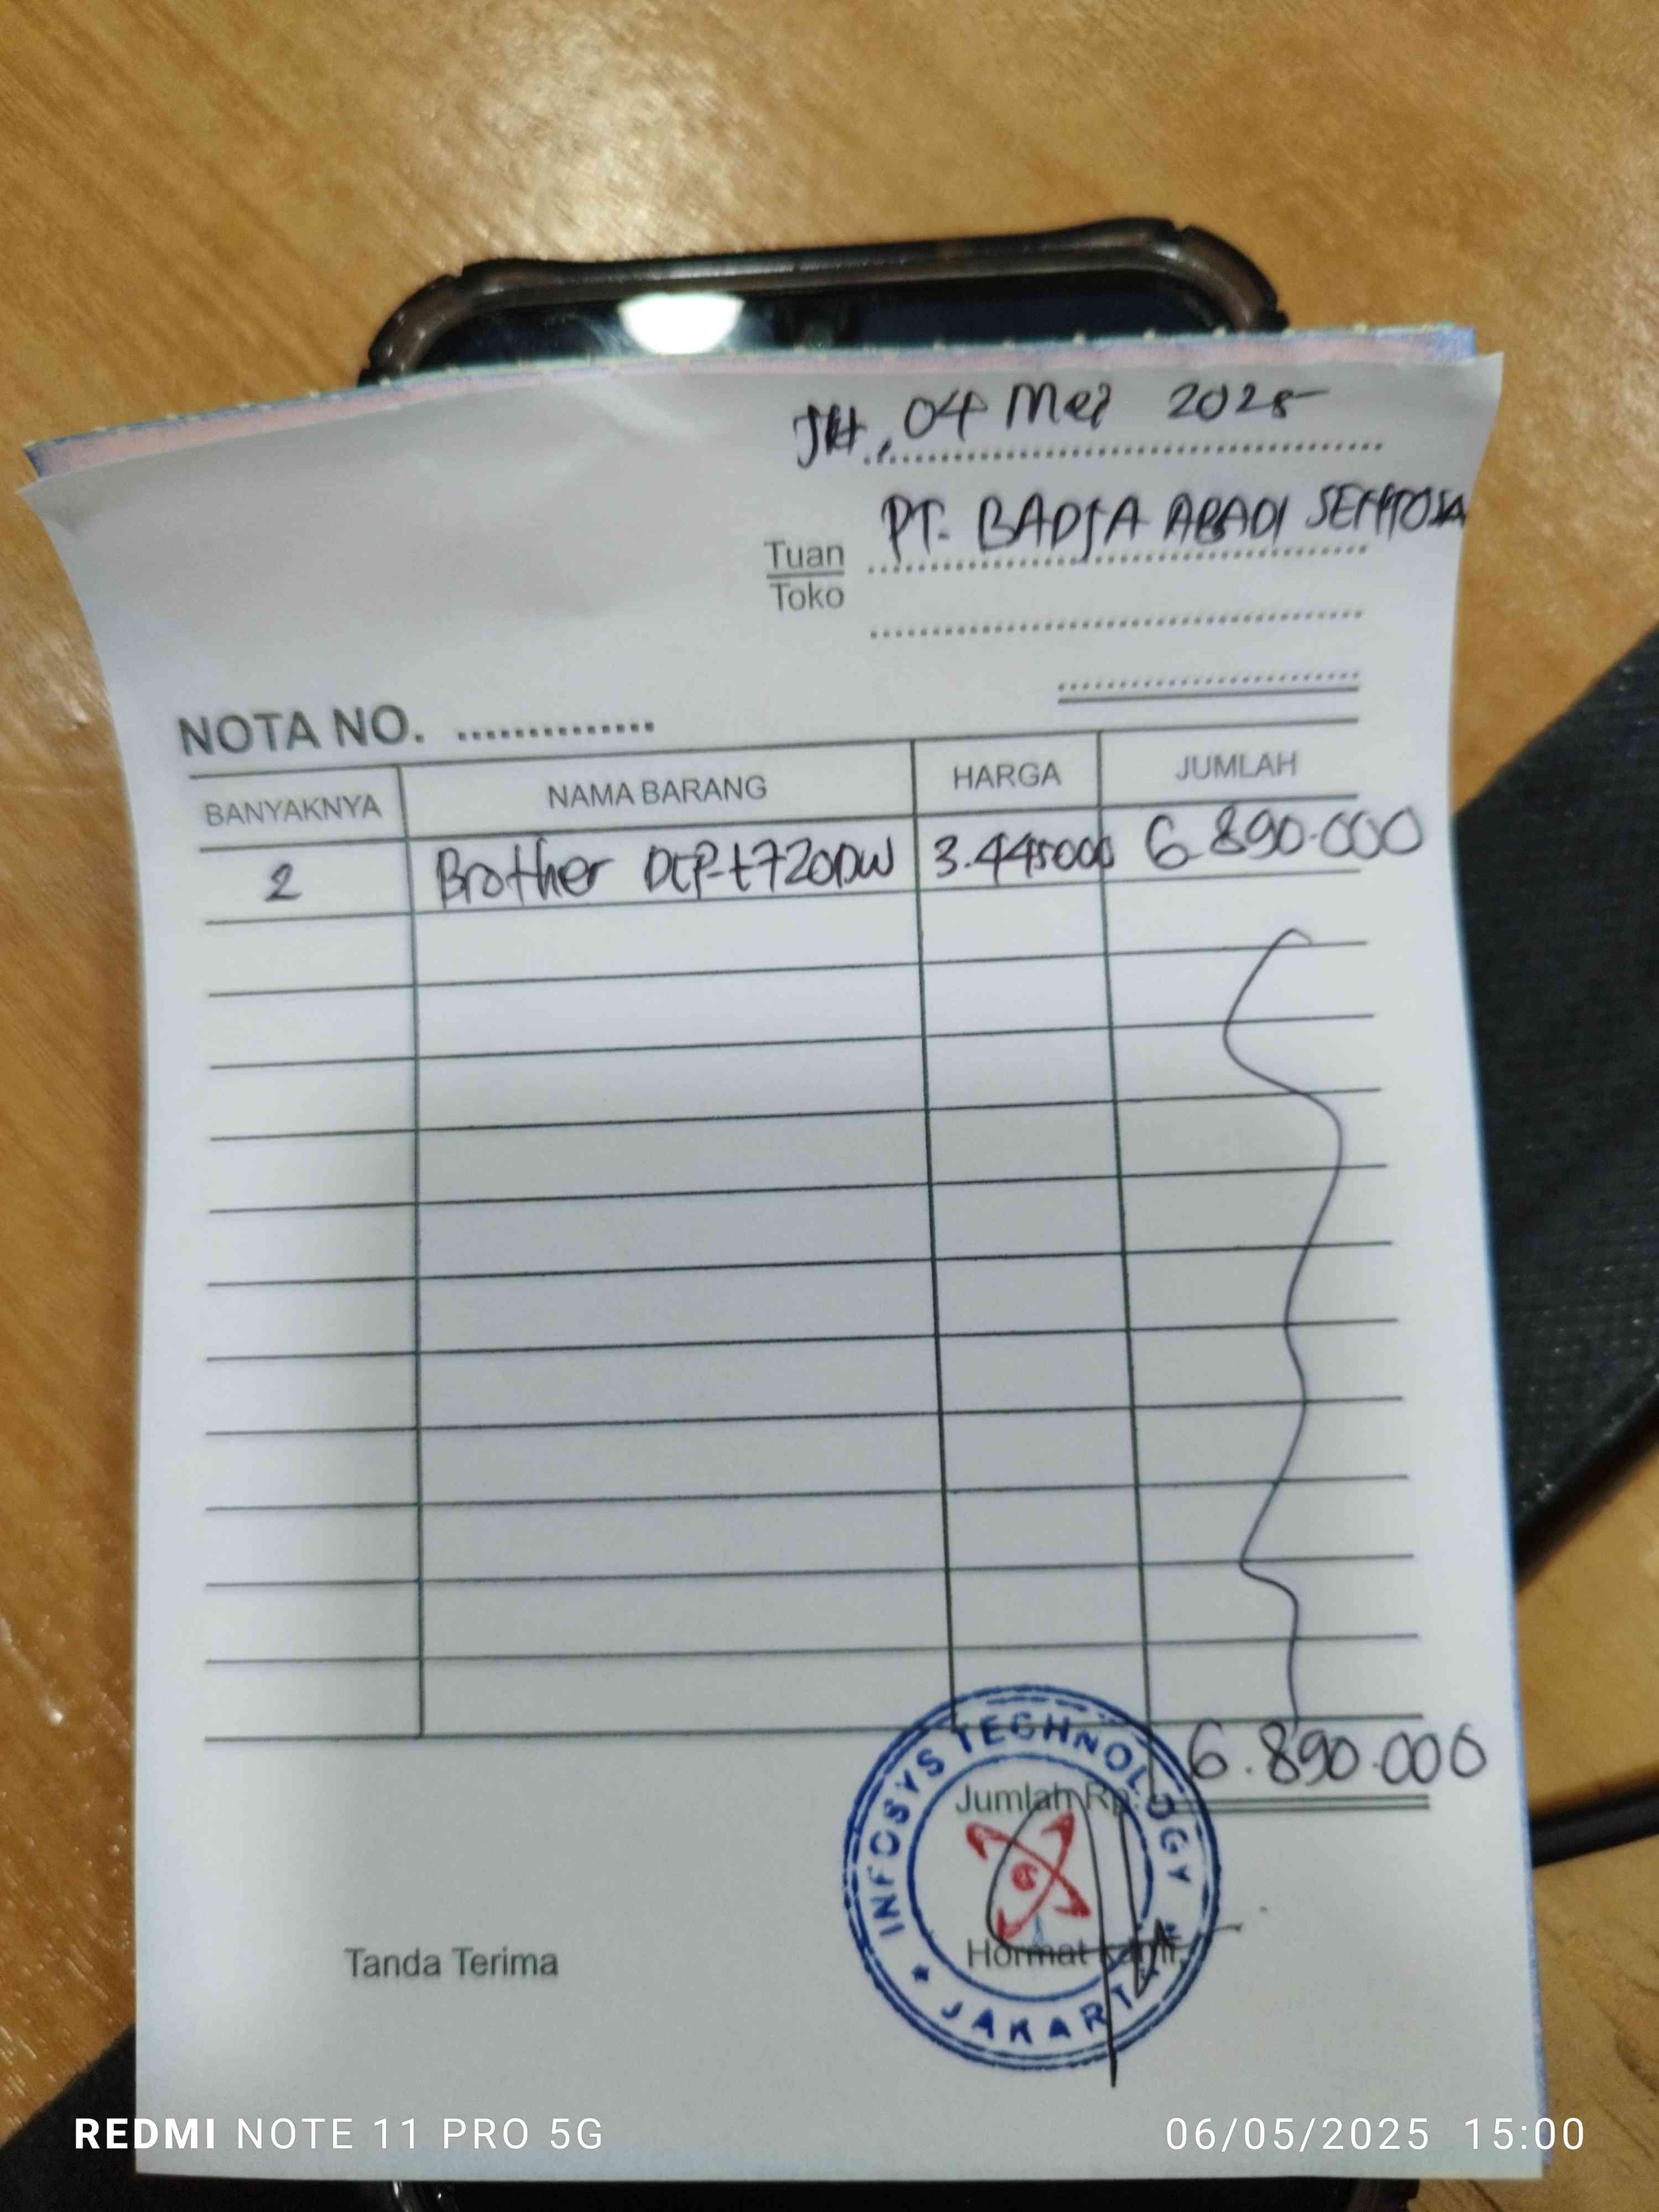 Jkt, 04 Mei 2025
PT. BADJA ABADI SENTOSA
Tuan
Toko
NOTA NO.
BANYAKNYA NAMA BARANG HARGA JUMLAH
2 Brother DCP-t720DW 3.445000 6.890.000
6.890.000
Jumlah Rp.
INFOSYS TECHNOLOGY
JAKARTA
Tanda Terima Hormat kami,
REDMI NOTE 11 PRO 5G 06/05/2025 15:00